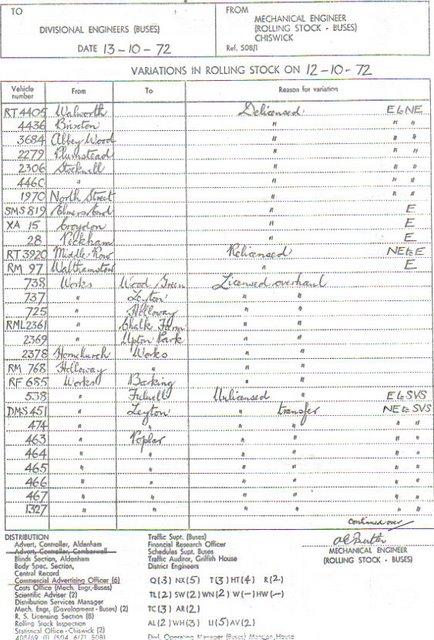 TO
DIVISIONAL ENGINEERS (BUSES)
DATE 13-10-72
FROM
MECHANICAL ENGINEER
(ROLLING STOCK - BUSES)
CHISWICK
Ref. 508/1
VARIATIONS IN ROLLING STOCK ON 12-10-72
Vehicle number From To Reason for variation
RT 4405 Walworth Delicensed E to NE
4436 Brixton " " "
3684 Abbey Wood " " "
2279 Plumstead " " "
2306 Stockwell " " "
446C " " " "
1970 North Street " " "
SMS 819 Elmers End " E
XA 15 Croydon " E
28 Peckham " E
RT 3920 Middle Row Relicensed NE to E
RM 97 Walthamstow " E
738 Works Wood Green Licensed overhaul
737 " Leyton " "
725 " Holloway " "
RML 2361 " Chalk Farm " "
2369 " Upton Park " "
2378 Hornchurch Works " "
RM 768 Holloway " " "
RF 685 Works Barking " "
538 " Fulwell Unlicensed " E to SVS
DMS 451 " Leyton " transfer NE to SVS
474 " " " " " "
463 " Poplar " " " "
464 " " " " " "
465 " " " " " "
466 " " " " " "
467 " " " " " "
1327 " " " " " "
continued over
MECHANICAL ENGINEER
(ROLLING STOCK - BUSES)
DISTRIBUTION
Advert. Controller, Aldenham
Advert. Controller, Camberwell
Blinds Section, Aldenham
Body Spec. Section,
Central Record
Commercial Advertising Officer (6)
Costs Office (Mech. Engr.-Buses)
Scientific Adviser (2)
Distribution Services Manager
Mech. Engr. (Development - Buses) (2)
R. S. Licensing Section (8)
Rolling Stock Inspection
Statistical Office - Chiswick (2)
Traffic Supt. (Buses)
Financial Research Officer
Schedules Supt. Buses
Traffic Auditor, Griffith House
District Engineers
Q(3) NX(5) T(3) HT(4) R(2)
TL(2) SW(2) WN(2) W(-) HW(-)
TC(3) AR(2)
AL(2) WH(3) U(5) AV(2)